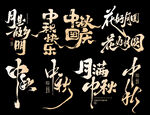 月是故乡明
中秋快乐
中秋国庆
花好月圆
花好月圆
中秋
中秋
月满中秋
中秋